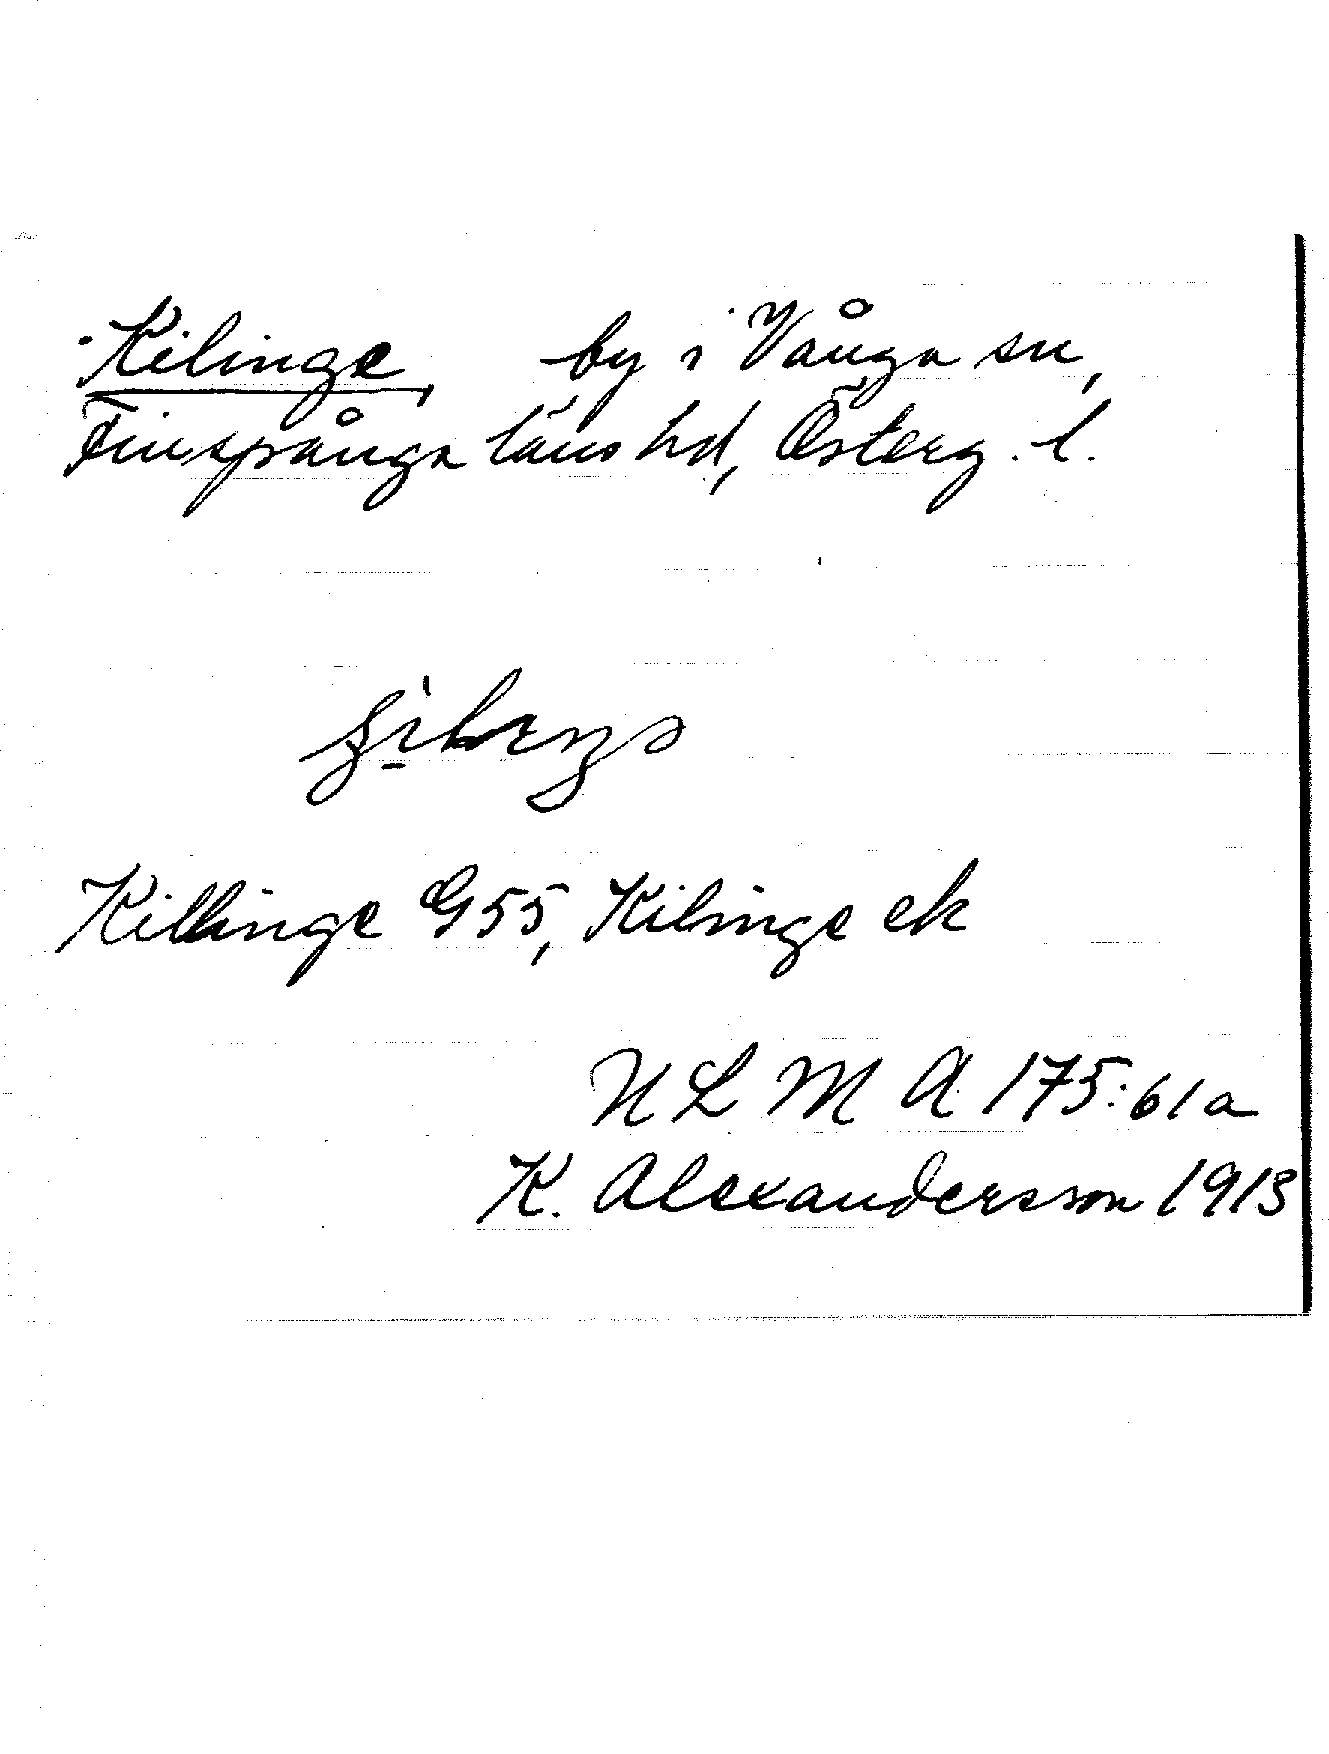 Kilinge, by i Vånga sn,
Finspånga läns hd, Österg. l.
Killinge G55, Kilinge ek
N L M A 175:61a
K. Alexandersson 1913